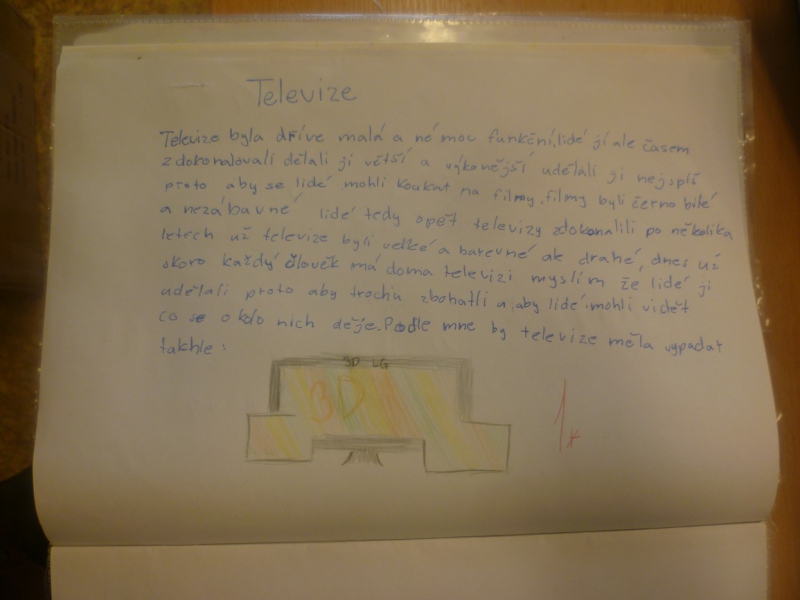 Televize
Televize byla dříve malá a né moc funkční, lidé jí ale časem
zdokonalovali dělali ji větší a výkonější udělali ji nejspíš
proto aby se lidé mohli koukat na filmy, filmy byli černo bílé
a nezábavné lidé tedy opět televizy zdokonalili po několika
letech už televize byli velké a barevné ale drahé, dnes už
skoro každý člověk má doma televizi myslím že lidé ji
udělali proto aby trochu zbohatli a aby lidé mohli vidět
co se okolo nich děje. Podle mne by televize měla vypadat
takhle:
3D LG
3D
1*